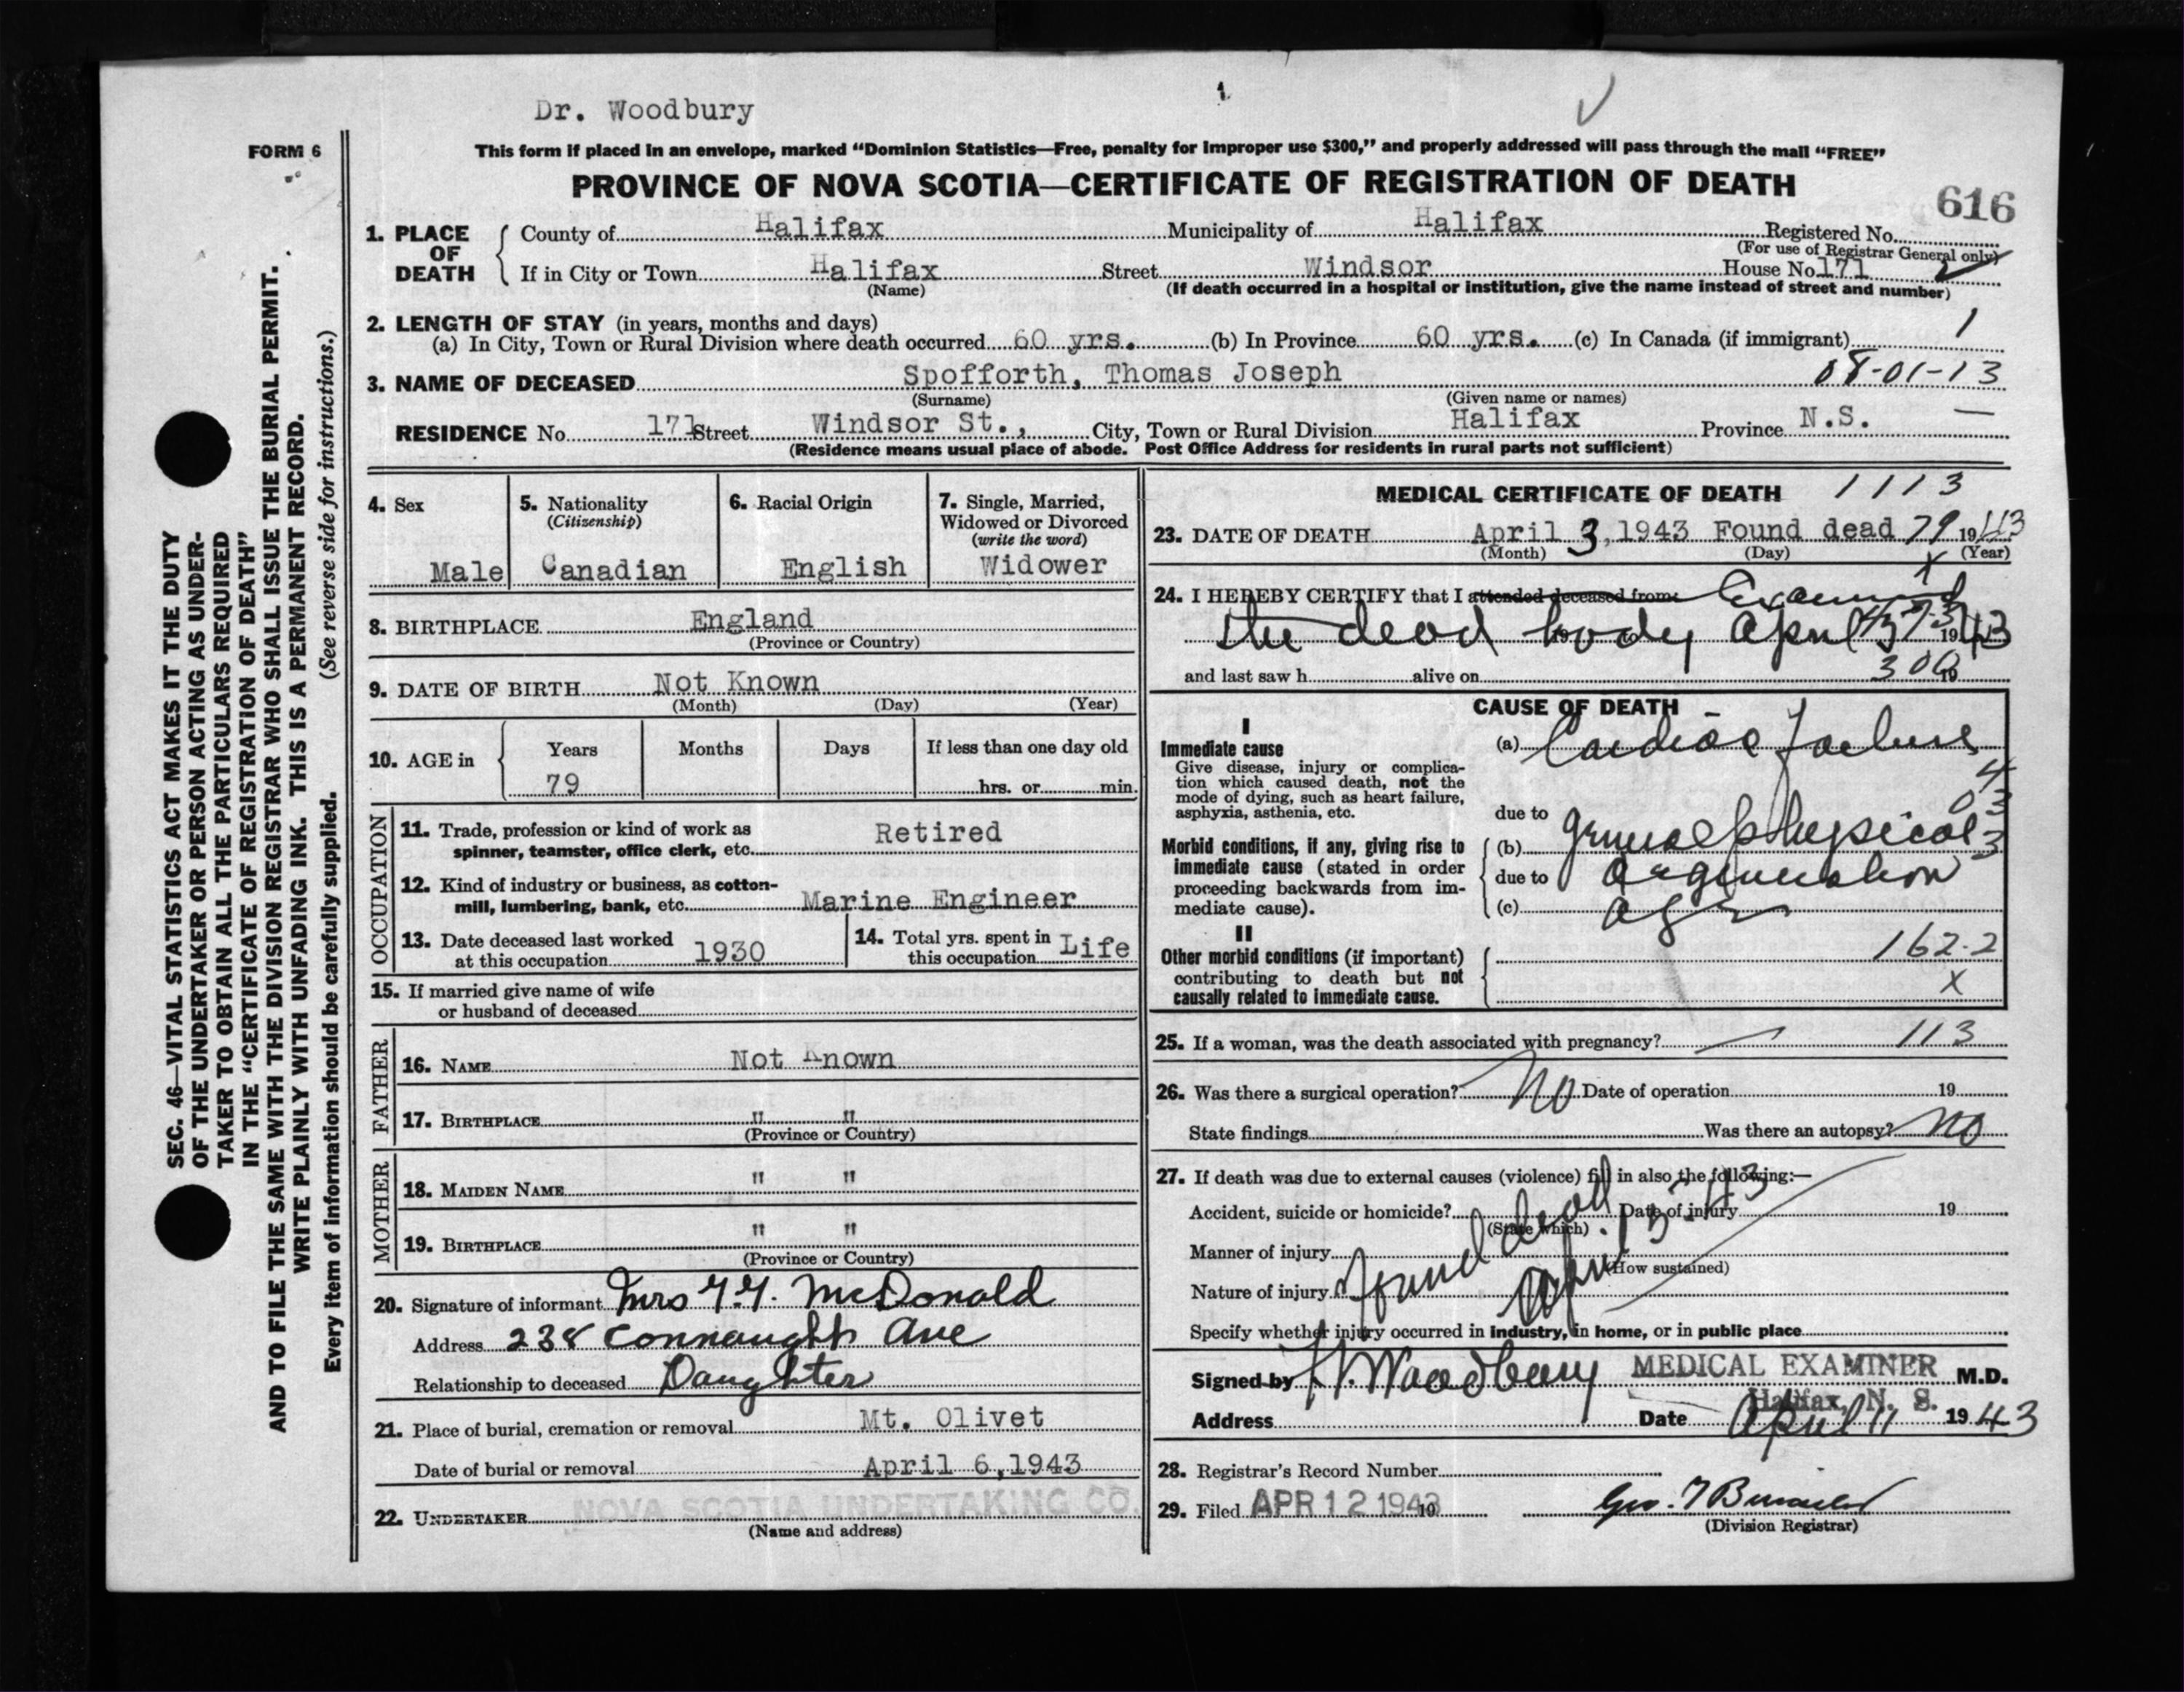 Dr. Woodbury
FORM 6
This form if placed in an envelope, marked “Dominion Statistics—Free, penalty for improper use $300,” and properly addressed will pass through the mail “FREE”
PROVINCE OF NOVA SCOTIA—CERTIFICATE OF REGISTRATION OF DEATH
616
1. PLACE OF DEATH
County of Halifax Municipality of Halifax Registered No.
(For use of Registrar General only)
If in City or Town Halifax Street Windsor House No. 171 2
(Name) (If death occurred in a hospital or institution, give the name instead of street and number)
2. LENGTH OF STAY (in years, months and days)
(a) In City, Town or Rural Division where death occurred 60 yrs. (b) In Province 60 yrs. (c) In Canada (if immigrant) 1
3. NAME OF DECEASED Spofforth, Thomas Joseph 08-01-13
(Surname) (Given name or names)
RESIDENCE No. 171 Street Windsor St., City, Town or Rural Division Halifax Province N.S. —
(Residence means usual place of abode. Post Office Address for residents in rural parts not sufficient)
SEC. 46—VITAL STATISTICS ACT MAKES IT THE DUTY
OF THE UNDERTAKER OR PERSON ACTING AS UNDER-
TAKER TO OBTAIN ALL THE PARTICULARS REQUIRED
IN THE "CERTIFICATE OF REGISTRATION OF DEATH"
AND TO FILE THE SAME WITH THE DIVISION REGISTRAR WHO SHALL ISSUE THE BURIAL PERMIT.
WRITE PLAINLY WITH UNFADING INK. THIS IS A PERMANENT RECORD.
Every item of information should be carefully supplied. (See reverse side for instructions.)
4. Sex
Male
5. Nationality
(Citizenship)
Canadian
6. Racial Origin
English
7. Single, Married,
Widowed or Divorced
(write the word)
Widower
8. BIRTHPLACE England
(Province or Country)
9. DATE OF BIRTH Not Known
(Month) (Day) (Year)
10. AGE in
Years Months Days If less than one day old
79 hrs. or min.
OCCUPATION
11. Trade, profession or kind of work as
spinner, teamster, office clerk, etc. Retired
12. Kind of industry or business, as cotton-
mill, lumbering, bank, etc. Marine Engineer
13. Date deceased last worked
at this occupation 1930
14. Total yrs. spent in
this occupation Life
15. If married give name of wife
or husband of deceased
FATHER
16. NAME Not Known
17. BIRTHPLACE " "
(Province or Country)
MOTHER
18. MAIDEN NAME " "
19. BIRTHPLACE " "
(Province or Country)
20. Signature of informant Mrs McDonald
Address 238 Connaught Ave
Relationship to deceased Daughter
21. Place of burial, cremation or removal Mt. Olivet
Date of burial or removal April 6,1943
22. UNDERTAKER NOVA SCOTIA UNDERTAKING CO.
(Name and address)
MEDICAL CERTIFICATE OF DEATH 1113
23. DATE OF DEATH April 3, 1943 Found dead 79 1943
(Month) (Day) (Year)
X
24. I HEREBY CERTIFY that I attended deceased from Examined
the dead body April 3 1943
and last saw h alive on 300 19
CAUSE OF DEATH
I
Immediate cause
Give disease, injury or complica-
tion which caused death, not the
mode of dying, such as heart failure,
asphyxia, asthenia, etc.
(a) Cardiac Failure
due to
Morbid conditions, if any, giving rise to
immediate cause (stated in order
proceeding backwards from im-
mediate cause).
(b) general physical
due to degeneration
(c) age
II
Other morbid conditions (if important)
contributing to death but not
causally related to immediate cause.
162-2
X
25. If a woman, was the death associated with pregnancy? 113
26. Was there a surgical operation? No Date of operation 19
State findings Was there an autopsy? No
27. If death was due to external causes (violence) fill in also the following:—
Accident, suicide or homicide? Date of injury 19
(State which)
Manner of injury
(How sustained)
Nature of injury
found dead
April 3-43
Specify whether injury occurred in industry, in home, or in public place
Signed by Woodbury MEDICAL EXAMINER M.D.
Halifax, N. S.
Address Date April 11 1943
28. Registrar's Record Number
29. Filed APR 12 1943 19
(Division Registrar)